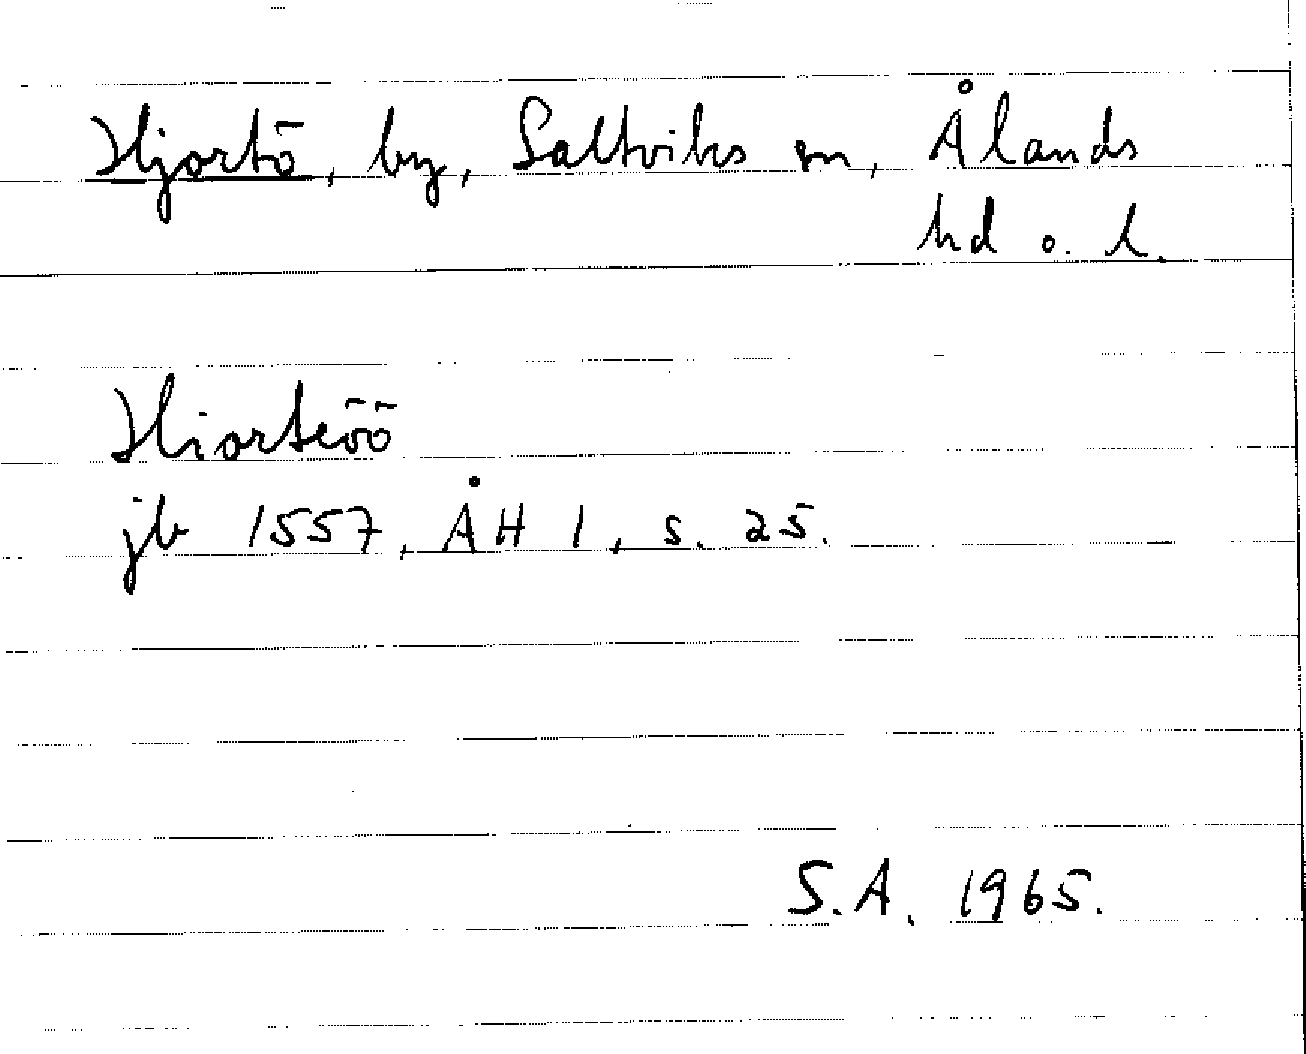 Hjortö, by, Saltviks sn, Ålands
hd o. l.
Hiorteöö
jb 1557, ÅH 1, s. 25.
S.A. 1965.